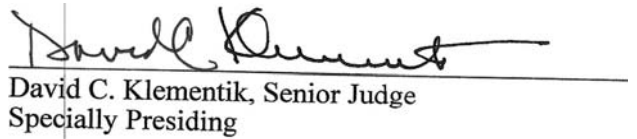 David C. Klement
David C. Klementik, Senior Judge
Specially Presiding